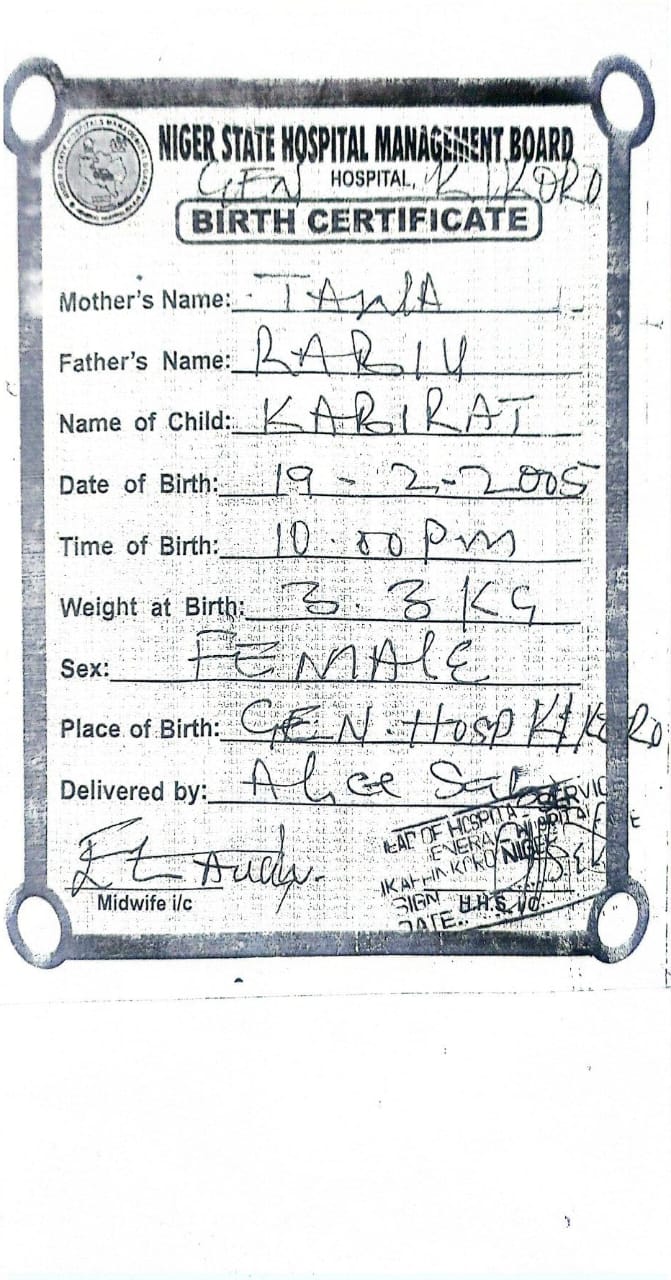 NIGER STATE HOSPITAL MANAGEMENT BOARD
GEN HOSPITAL, K/KORO
BIRTH CERTIFICATE
Mother's Name: TANIA
Father's Name: RABIU
Name of Child: KABIRAT
Date of Birth: 19 - 2 - 2005
Time of Birth: 10.00 pm
Weight at Birth: 3.3 KG
Sex: FEMAlE
Place of Birth: GEN. HOSP K/KORO
Delivered by: Alice
HEAD OF HOSPITAL SERVICE
GENERAL HOSPITAL
KAFFIN KORO NIGER
Midwife i/c
SIGN H.H.S. i/c
DATE..